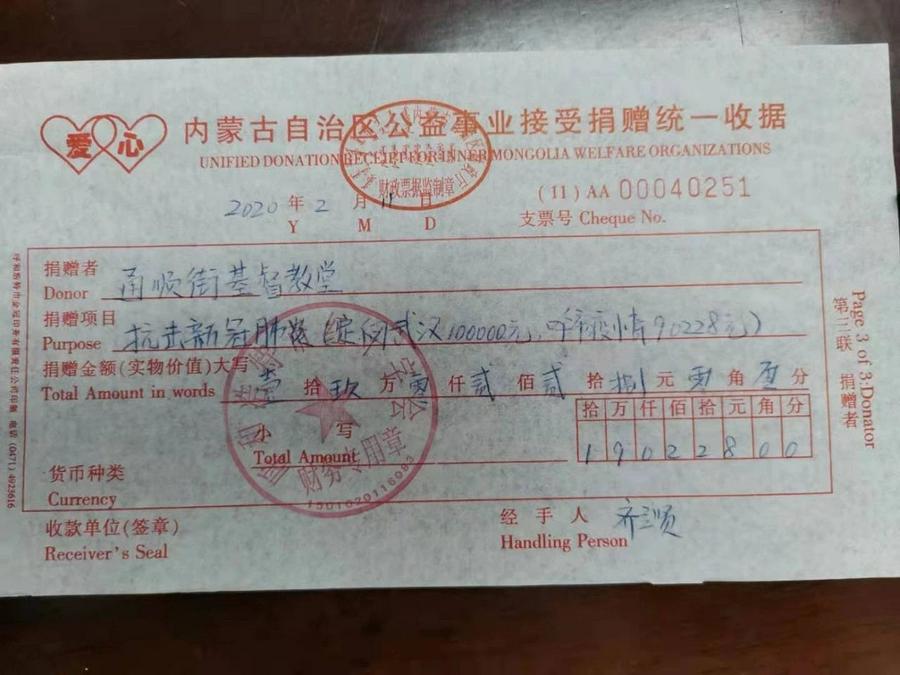 爱心 内蒙古自治区公益事业接受捐赠统一收据
UNIFIED DONATION RECEIPT FOR INNER MONGOLIA WELFARE ORGANIZATIONS
财政票据监制章
(11) AA 00040251
2020 年 2 月 11 日
Y M D
支票号 Cheque No.
捐赠者
Donor 通顺街基督教堂
捐赠项目
Purpose 抗击新冠肺炎(定向武汉100000元, 呼市疫情90228元)
捐赠金额(实物价值)大写
Total Amount in words 壹拾玖万零仟贰佰贰拾捌元零角零分
小写
Total Amount
拾万仟佰拾元角分
19022800
财务专用章
货币种类
Currency
收款单位(签章)
Receiver's Seal
经手人
Handling Person
Page 3 of 3:Donator
第三联 捐赠者
呼和浩特市金冠印务有限责任公司印制 电话 (0471) 4923616